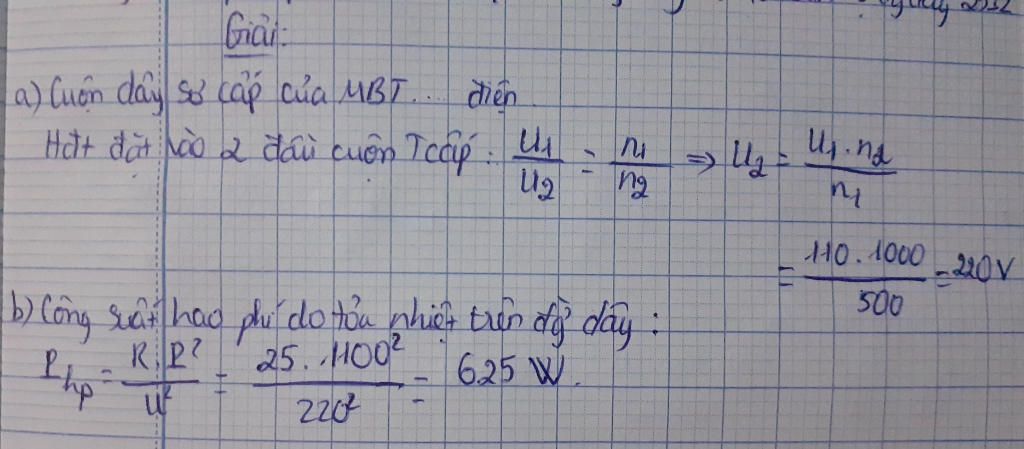 Giải:
a) Cuộn dây sơ cấp của MBT... điện
Hđt đặt vào 2 đầu cuộn Tcấp: U1/U2 = n1/n2 => U2 = U1.n2/n1
= 110.1000/500 = 220V
b) Công suất hao phí do tỏa nhiệt trên đg dây:
Php = R.P²/U² = 25..1100²/220² = 625 W.